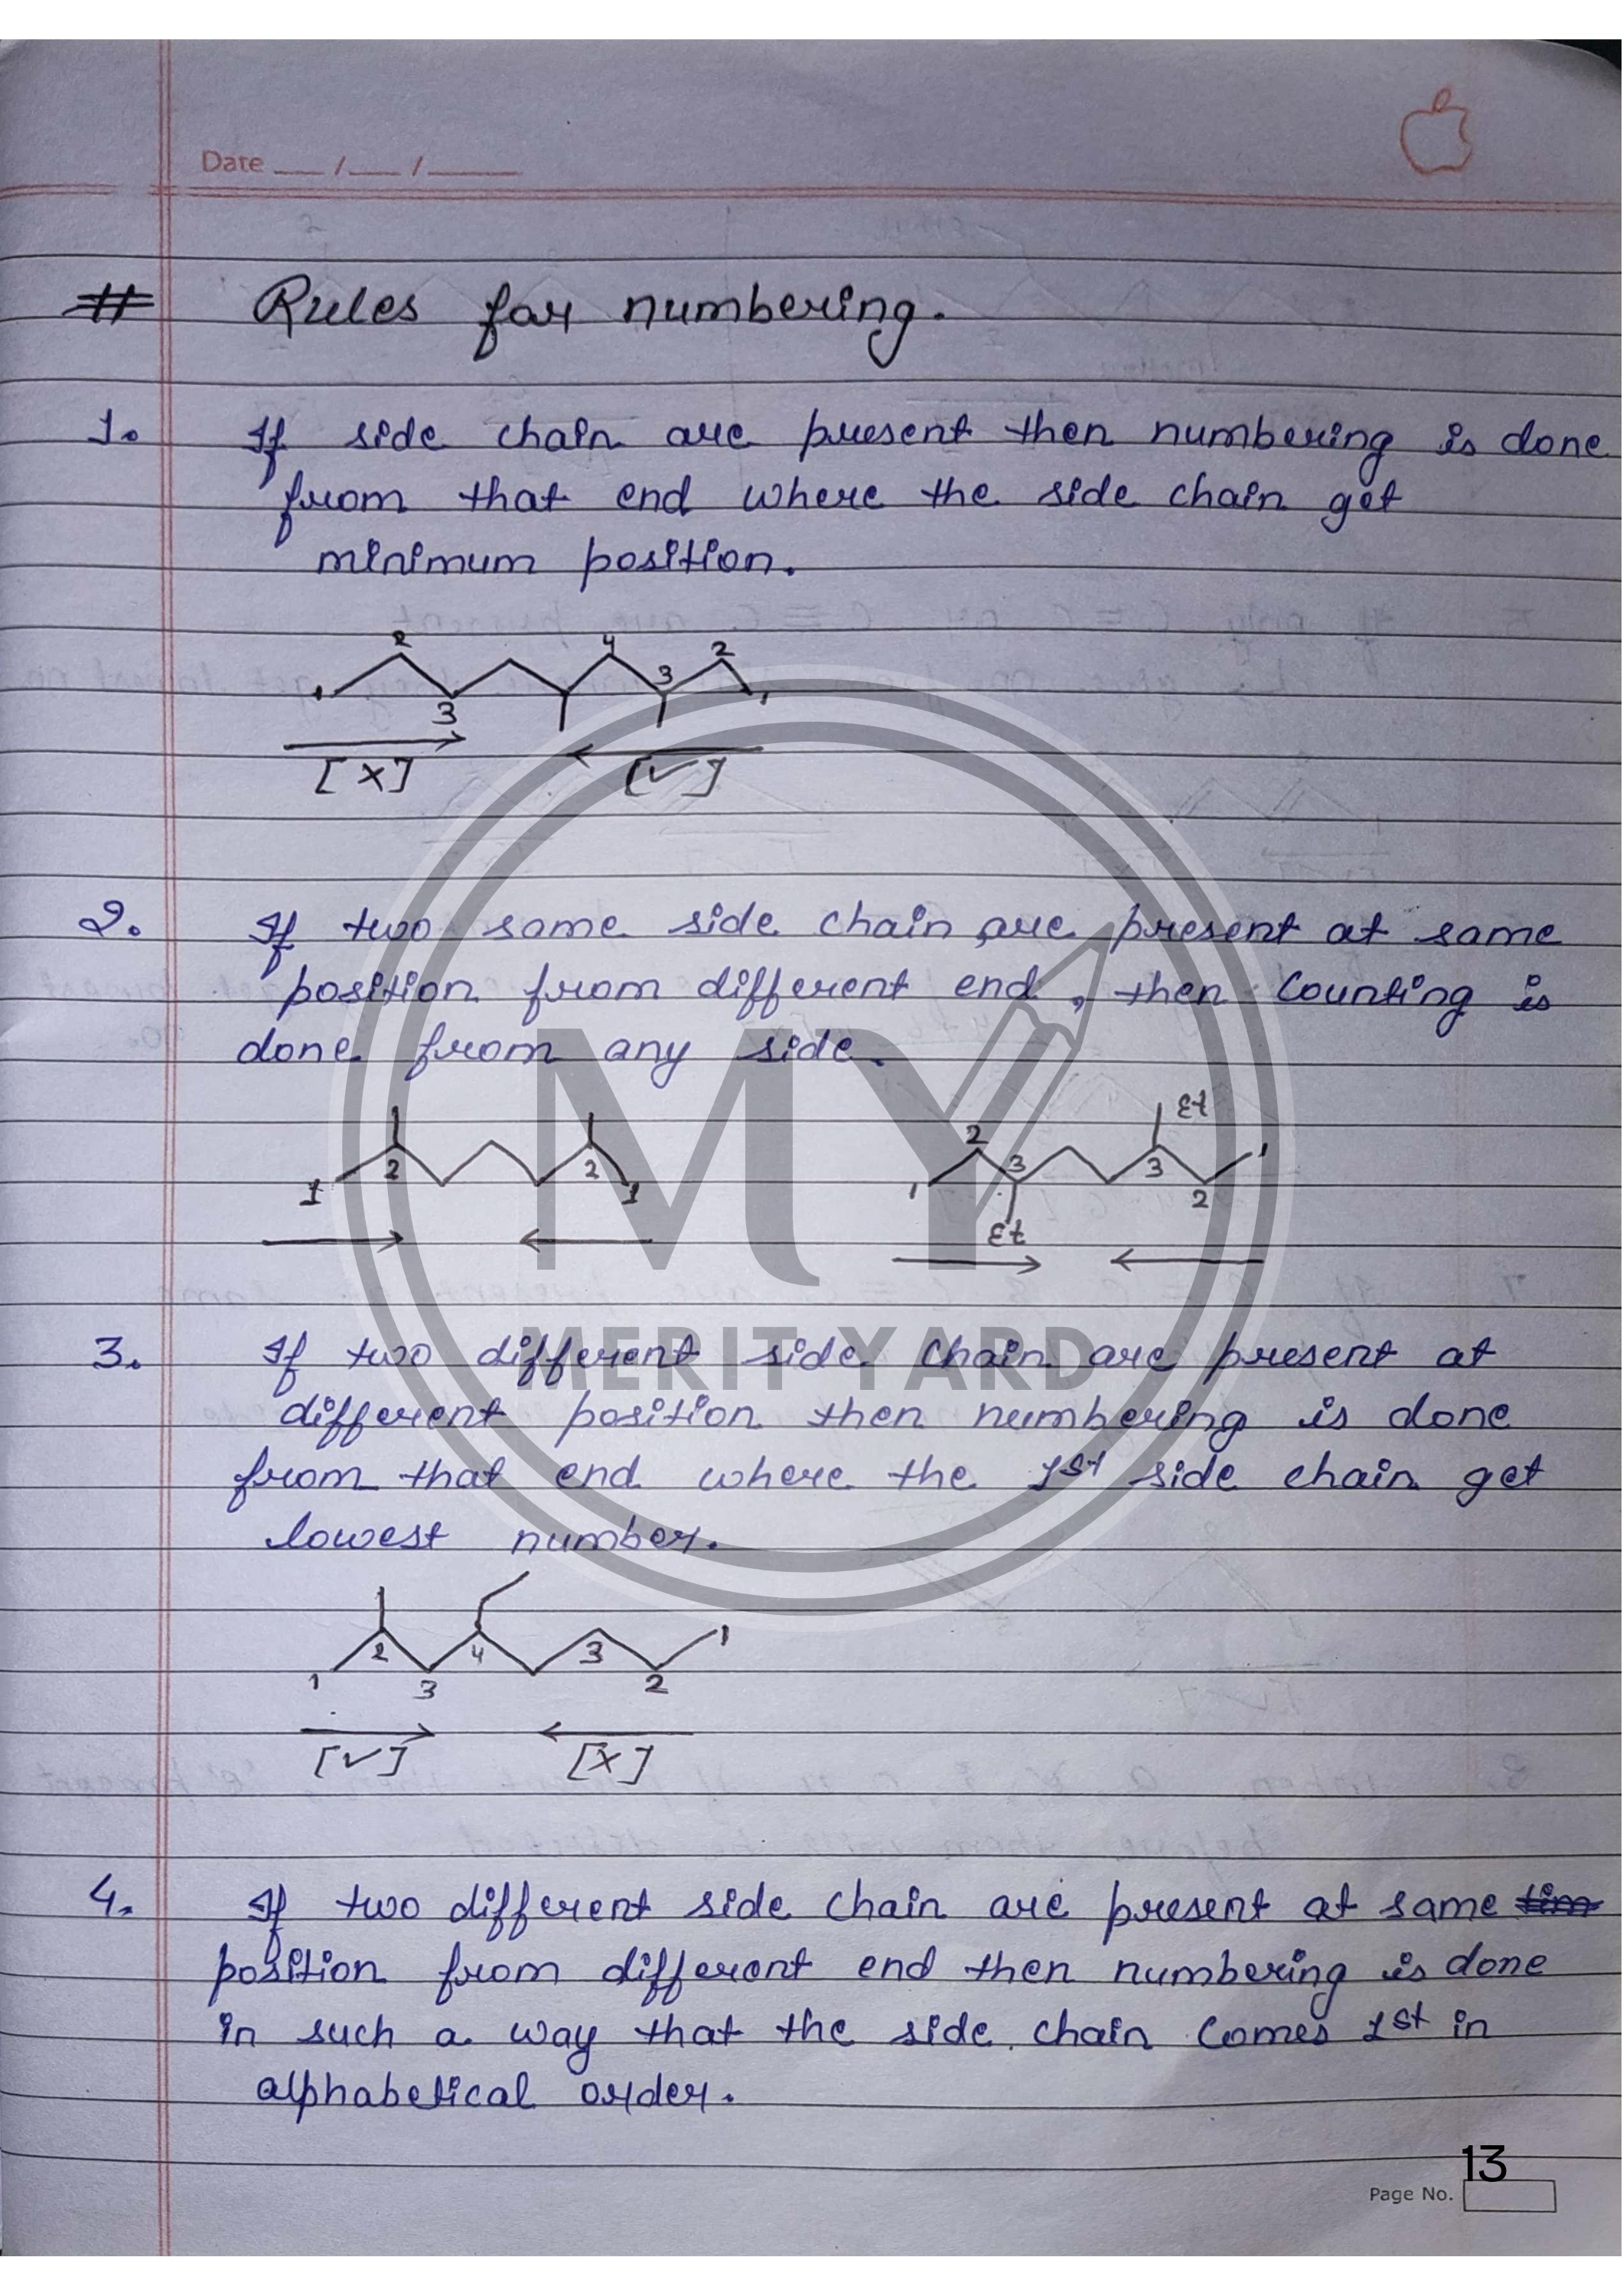 Date __/__/____
# Rules for numbering.
1. If side chain are present then numbering is done
from that end where the side chain get
minimum position.
1 2 3 4 3 2 1
[×] [✓]
2. If two same side chain are present at same
position from different end, then counting is
done from any side.
1 2 2 1
1 2 3 Et 3 Et 2 1
MY
MERIT YARD
3. If two different side chain are present at
different position then numbering is done
from that end where the 1st side chain get
lowest number.
1 2 3 4 3 2 1
[✓] [×]
4. If two different side chain are present at same
position from different end then numbering is done
in such a way that the side chain comes 1st in
alphabetical order.
13
Page No.